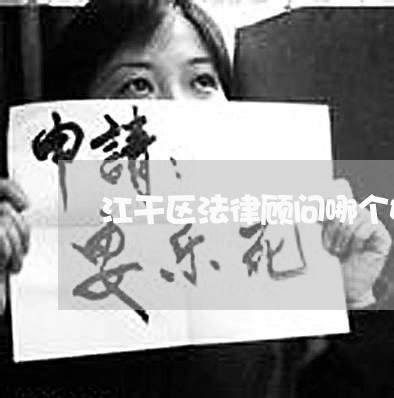 申請：
江干区法律顾问哪个
安乐死